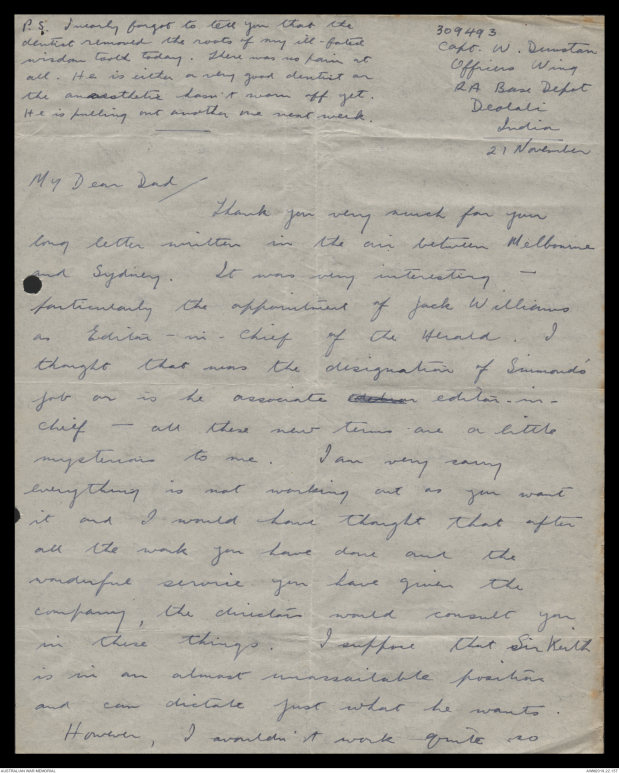 P.S. I nearly forgot to tell you that the
dentist removed the roots of my ill-fated
wisdom tooth today. There was no pain at
all. He is either a very good dentist or
the anaesthetic hasn't worn off yet.
He is pulling out another one next week.
309493
Capt. W. Dunstan
Officers Wing
RA Base Depot
Deolali
India
21 November
My Dear Dad/
Thank you very much for your
long letter written in the air between Melbourne
and Sydney. It was very interesting -
particularly the appointment of Jack Williams
as Editor-in-Chief of the Herald. I
thought that was the designation of Simmonds'
job or is he associate editor-in-
Chief - all these new terms are a little
mysterious to me. I am very sorry
everything is not working out as you want
it and I would have thought that after
all the work you have done and the
wonderful service you have given the
company, the directors would consult you
in these things. I suppose that Sir Keith
is in an almost unassailable position
and can dictate just what he wants.
However, I wouldn't work quite so
AUSTRALIAN WAR MEMORIAL